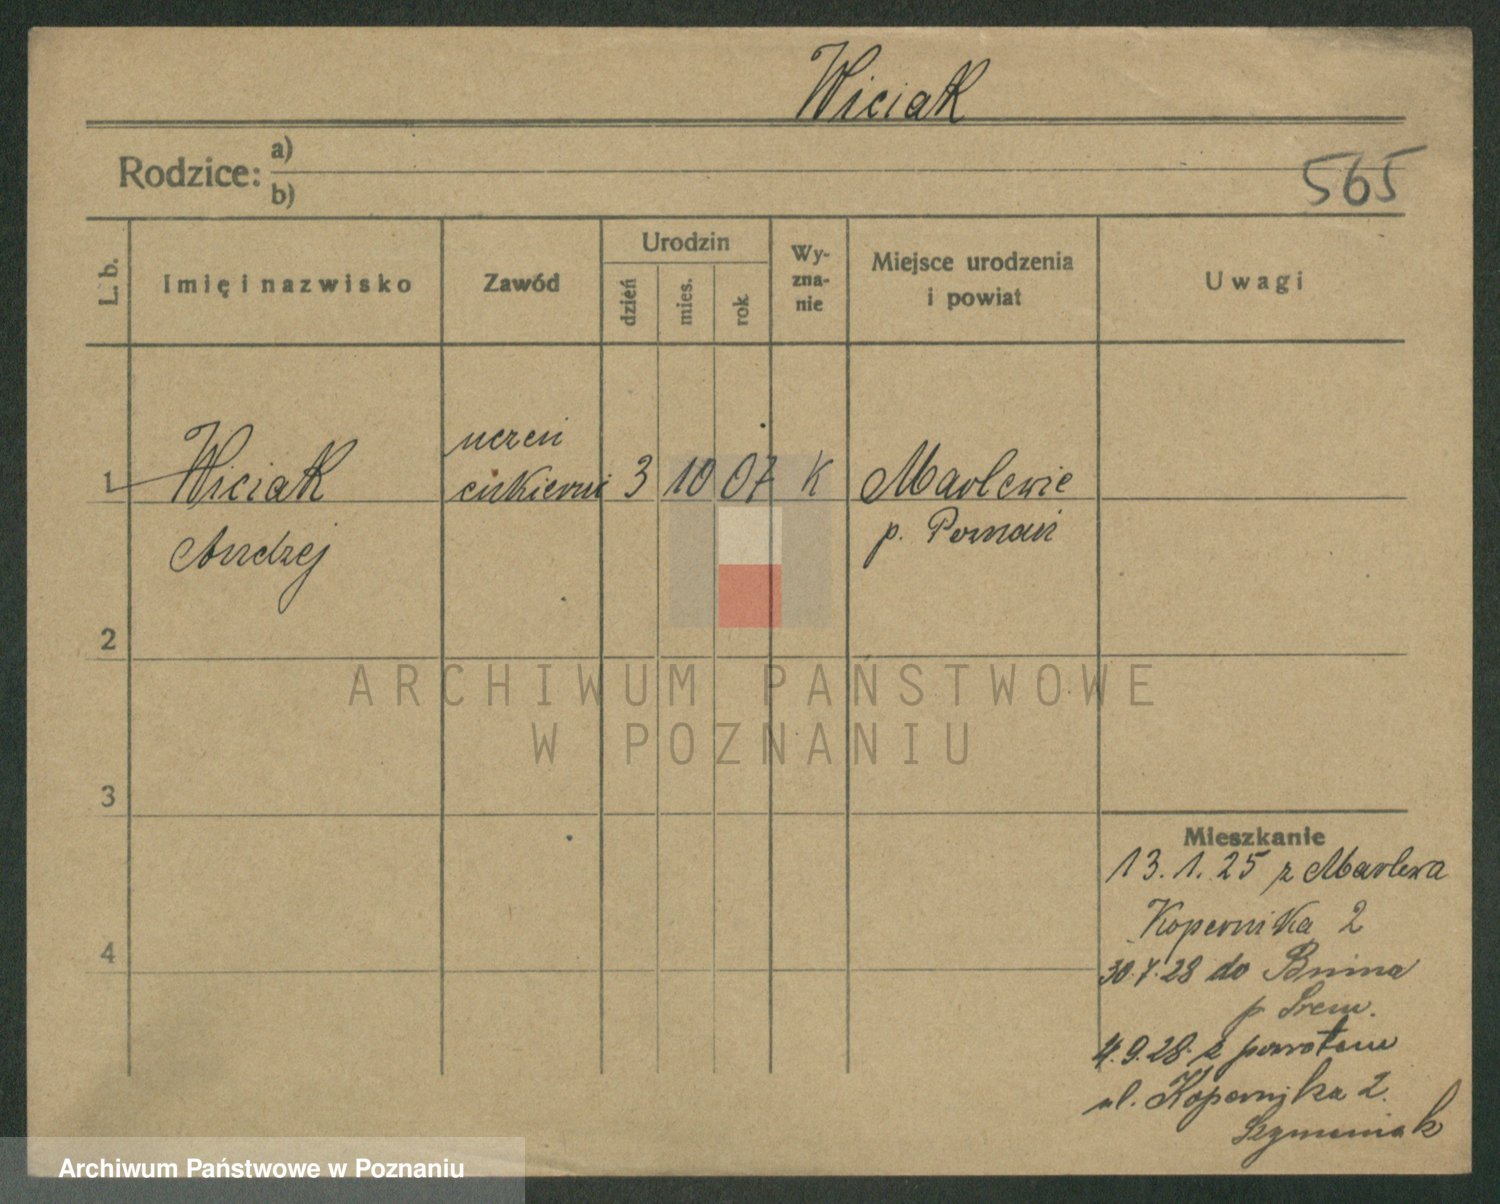 Wiciak
Rodzice: a)
b)
565
L. b.
Imię i nazwisko
Zawód
Urodzin
dzień
mies.
rok
Wy-
zna-
nie
Miejsce urodzenia
i powiat
Uwagi
1 Wiciak
Andrzej
uczeń
cukierni
3 10 07 K
Marlewie
p. Poznań
2
3
4
ARCHIWUM PAŃSTWOWE
W POZNANIU
Mieszkanie
13.1.25 z Marlewa
Kopernika 2
30.7.28 do Bnina
p Śrem.
4.9.28 z powrotem
ul. Kopernika 2.
Szymaniak
Archiwum Państwowe w Poznaniu